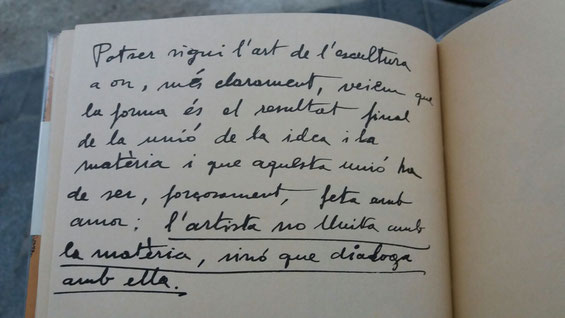 Potser sigui l'art de l'escultura
a on, més clarament, veiem que
la forma és el resultat final
de la unió de la idea i la
matèria i que aquesta unió ha
de ser, forçosament, feta amb
amor; l'artista no lluita amb
la matèria, sinó que dialoga
amb ella.